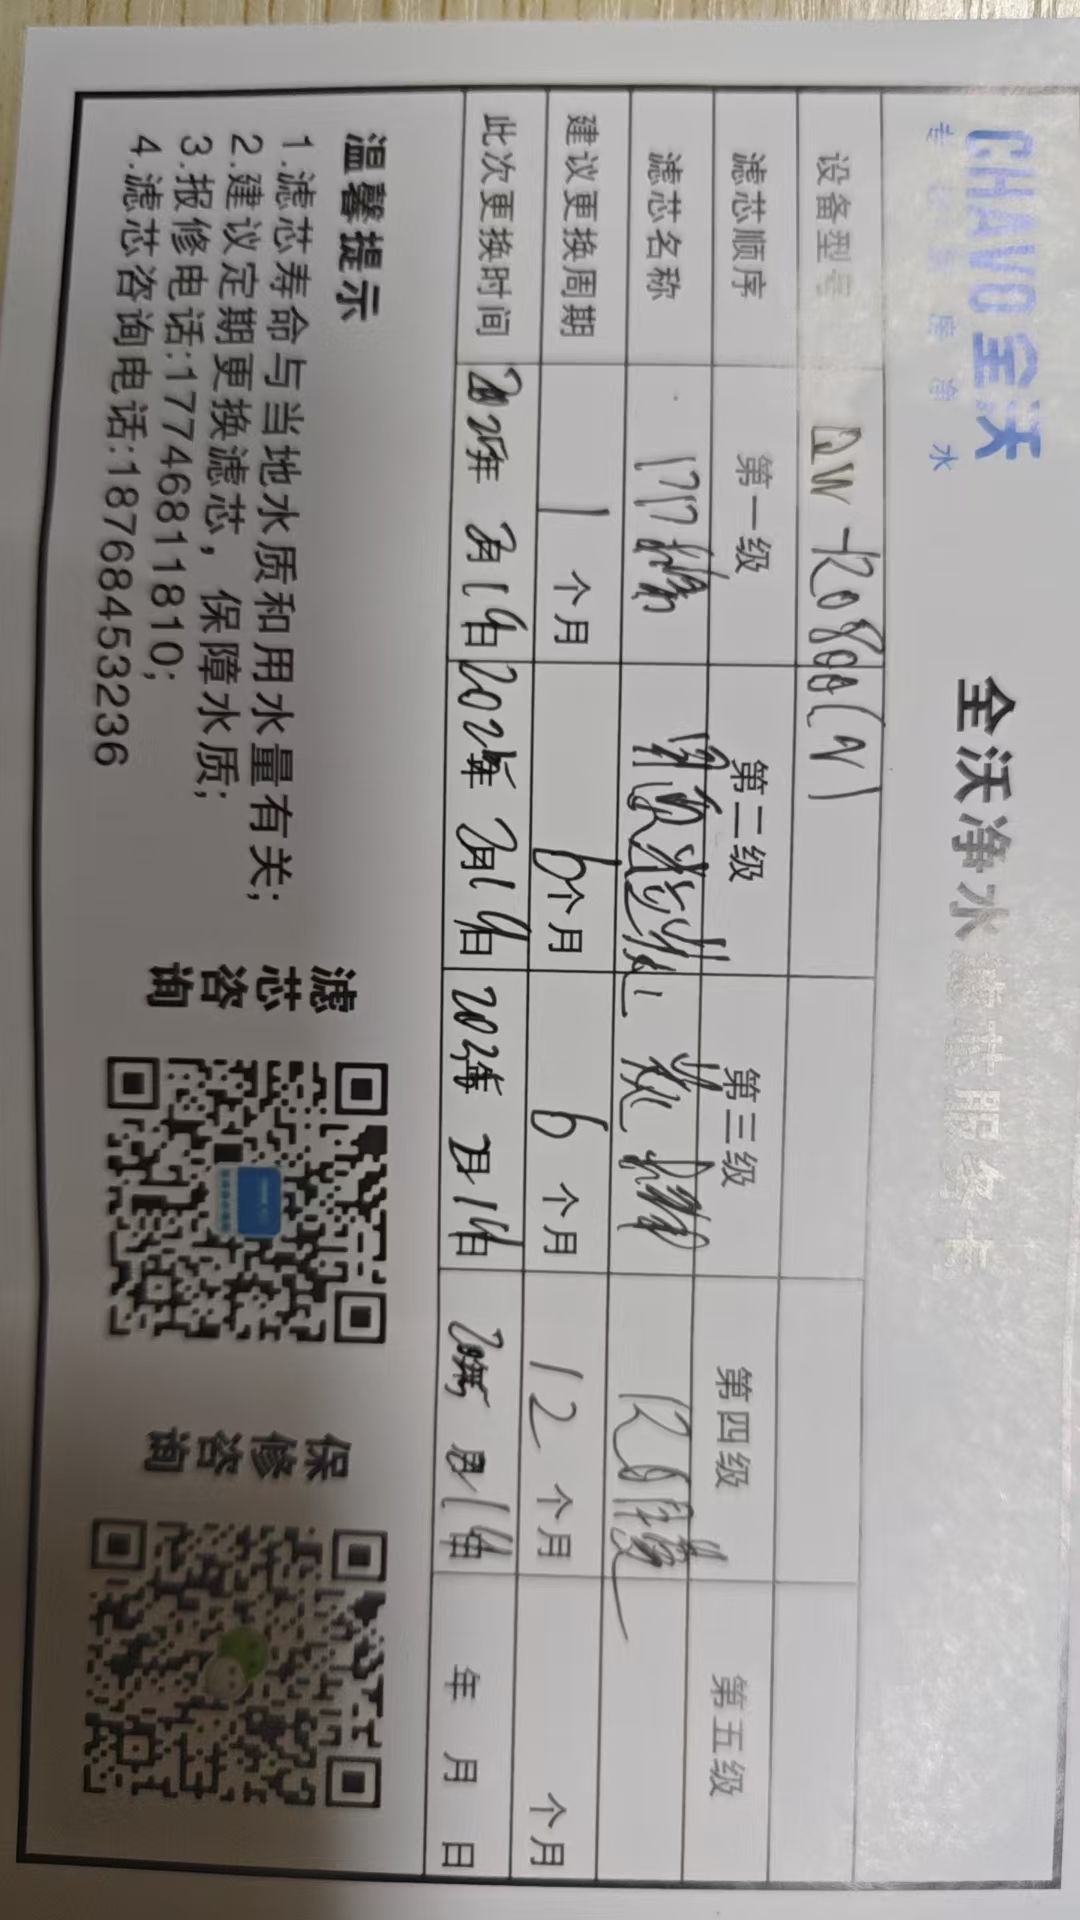 CHAWO全沃
专 注 厨 房 净 水
全沃净水滤芯服务卡
设备型号 QW-RO800(N)
滤芯顺序 第一级 第二级 第三级 第四级 第五级
滤芯名称 PP棉 RO膜
建议更换周期 1个月 6个月 6个月 12个月 个月
此次更换时间 2025年 月19日 2025年 月19日 2025年 月19日 2025年 月19日 年 月 日
温馨提示
1.滤芯寿命与当地水质和用水量有关;
2.建议定期更换滤芯，保障水质;
3.报修电话:17746811810;
4.滤芯咨询电话:18768453236
滤芯咨询
保修咨询